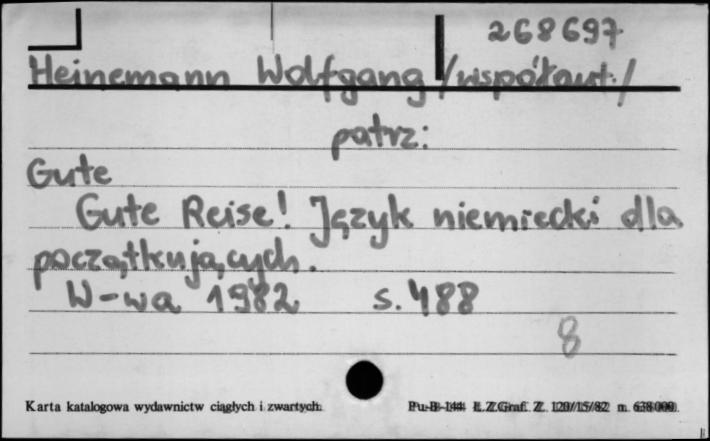 268697
Heinemann Wolfgang /współaut./
patrz:
Gute
Gute Reise! Język niemiecki dla
początkujących.
W-wa 1982 s. 488
8
Karta katalogowa wydawnictw ciągłych i zwartych. Pu-B-144 Ł.Z.Graf. Z. 120/15/82 n. 638000.